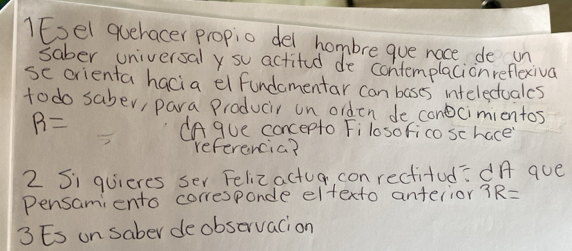 1 Es el quehacer propio del hombre que nace de un
saber universal y su actitud de contemplación reflexiva
se orienta hacia el fundamentar con bases intelectuales
todo saber, para producir un orden de conocimientos
R= ¿A que concepto Filosofico se hace
referencia?
2 Si quieres ser Feliz actua con rectitud: ¿A que
Pensamiento corresponde el texto anterior? R=
3 Es un saber de observacion